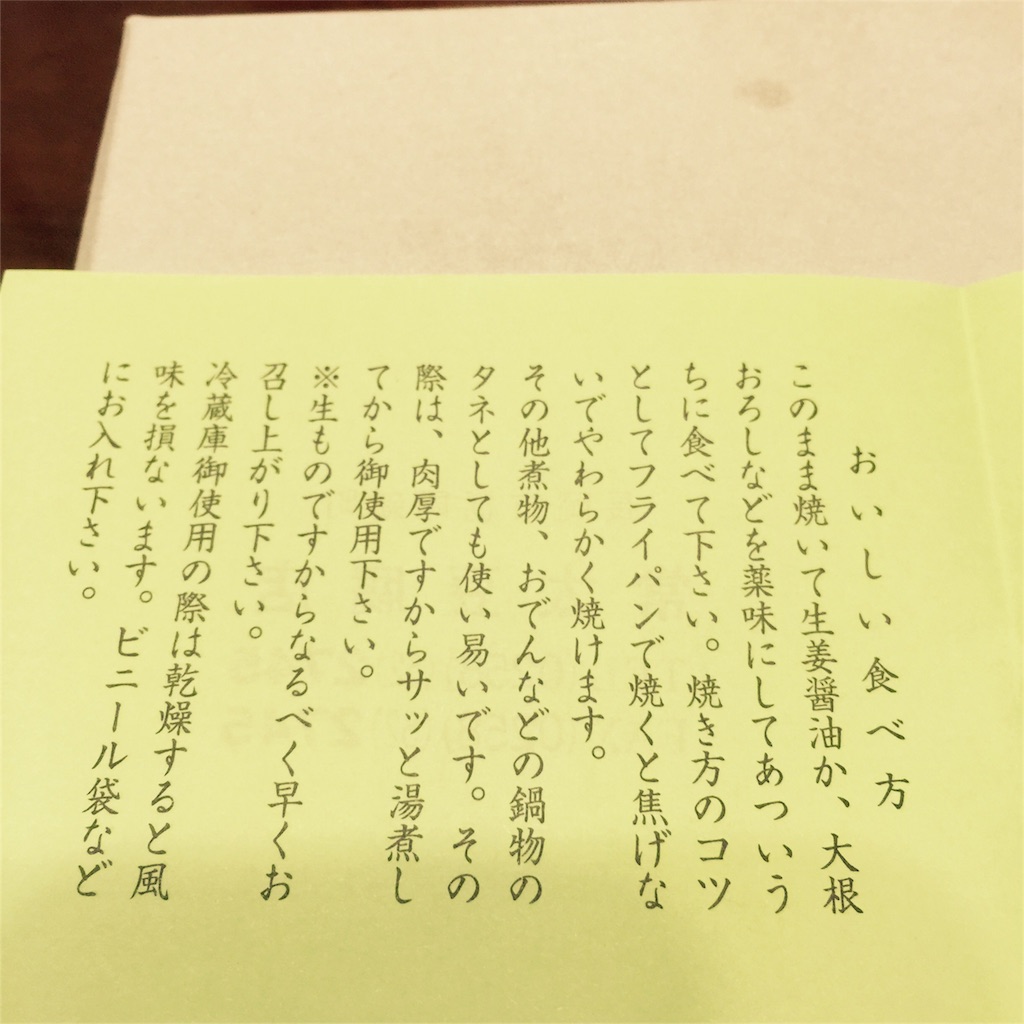 おいしい食べ方
このまま焼いて生姜醤油か、大根
おろしなどを薬味にしてあついう
ちに食べて下さい。焼き方のコツ
としてフライパンで焼くと焦げな
いでやわらかく焼けます。
その他煮物、おでんなどの鍋物の
タネとしても使い易いです。その
際は、肉厚ですからサッと湯煮し
てから御使用下さい。
※生ものですからなるべく早くお
召し上がり下さい。
冷蔵庫御使用の際は乾燥すると風
味を損ないます。ビニール袋など
にお入れ下さい。